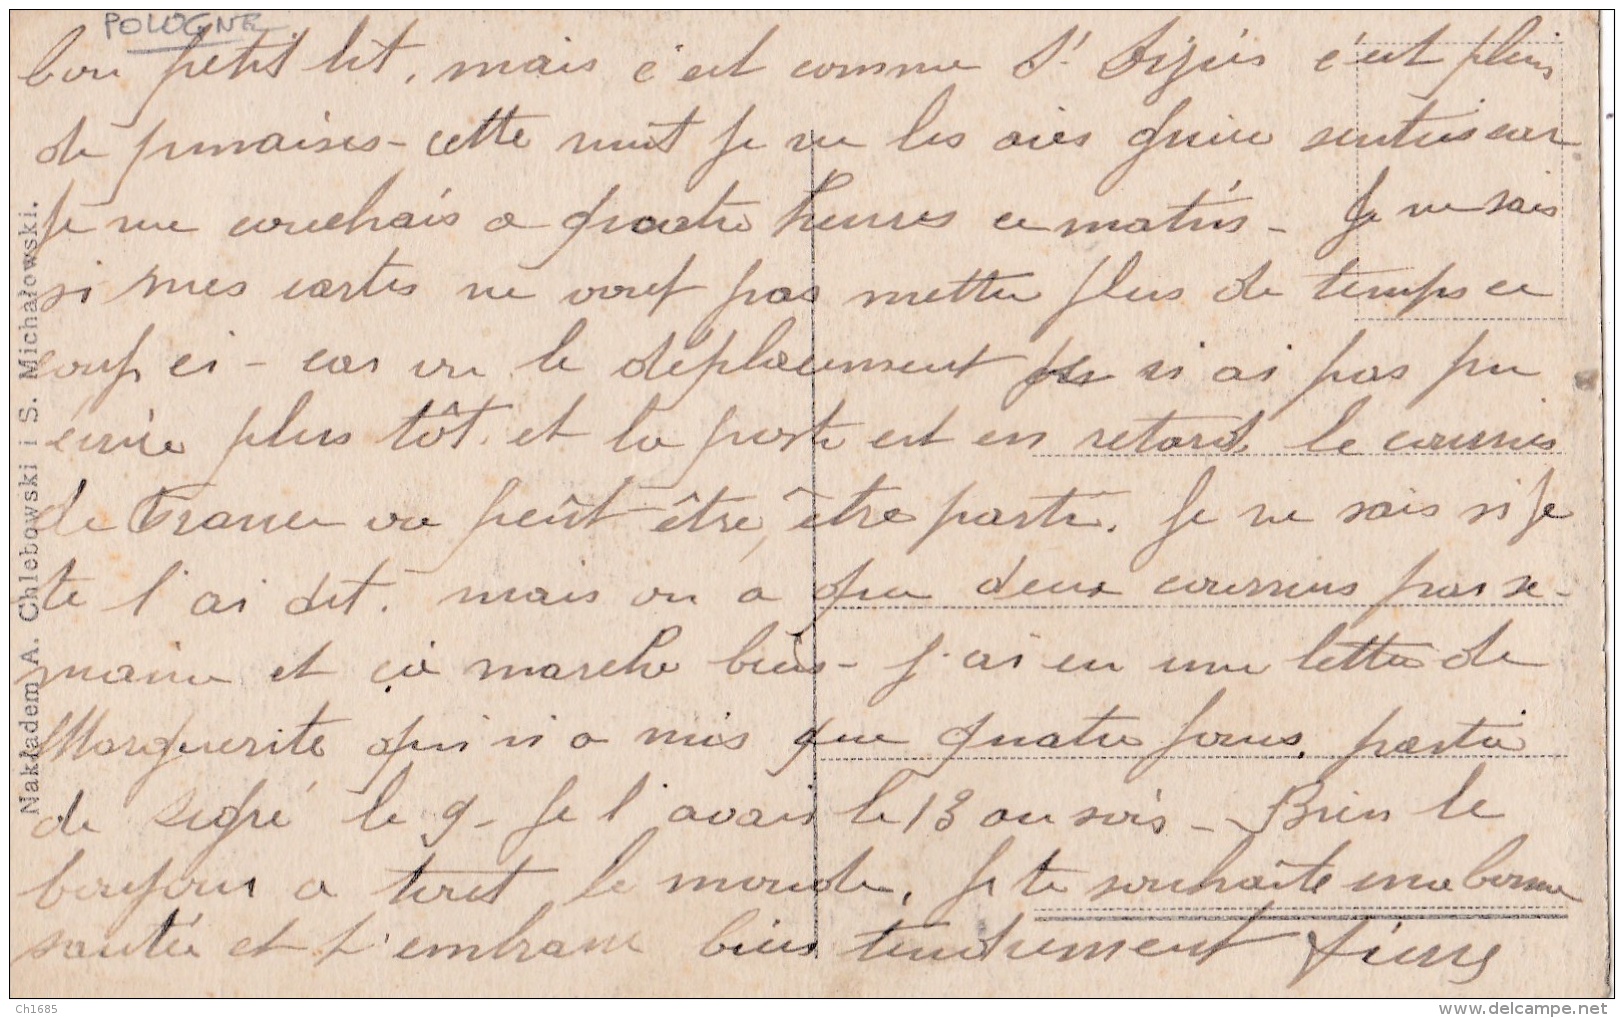 POLOGNE
bon petit lit, mais c'est comme St c'est plein
de punaises - cette nuit je ne les ai guère senties car
je me couchais a quatre heures ce matin - Je ne sais
si mes cartes ne vont pas mettre plus de temps ce
coup ci - car vu le déplacement je n'ai pas pu
écrire plus tôt. et la poste est en retard le courrier
de France va peût-être, être parti. Je ne sais si je
te l'ai dit. mais on a que deux courriers par se-
maine et ça marche bien - j'ai eu une lettre de
Marguerite qui n'a mis que quatre jours. partie
de Segré le 9 - je l'avais le 13 au soir - Bien le
bonjour a tout le monde. Je te souhaite une bonne
santée et t'embrasse bien tendrement Pierre
Nakładem A. Chlebowski i S. Michałowski.
Ch1685
www.delcampe.net